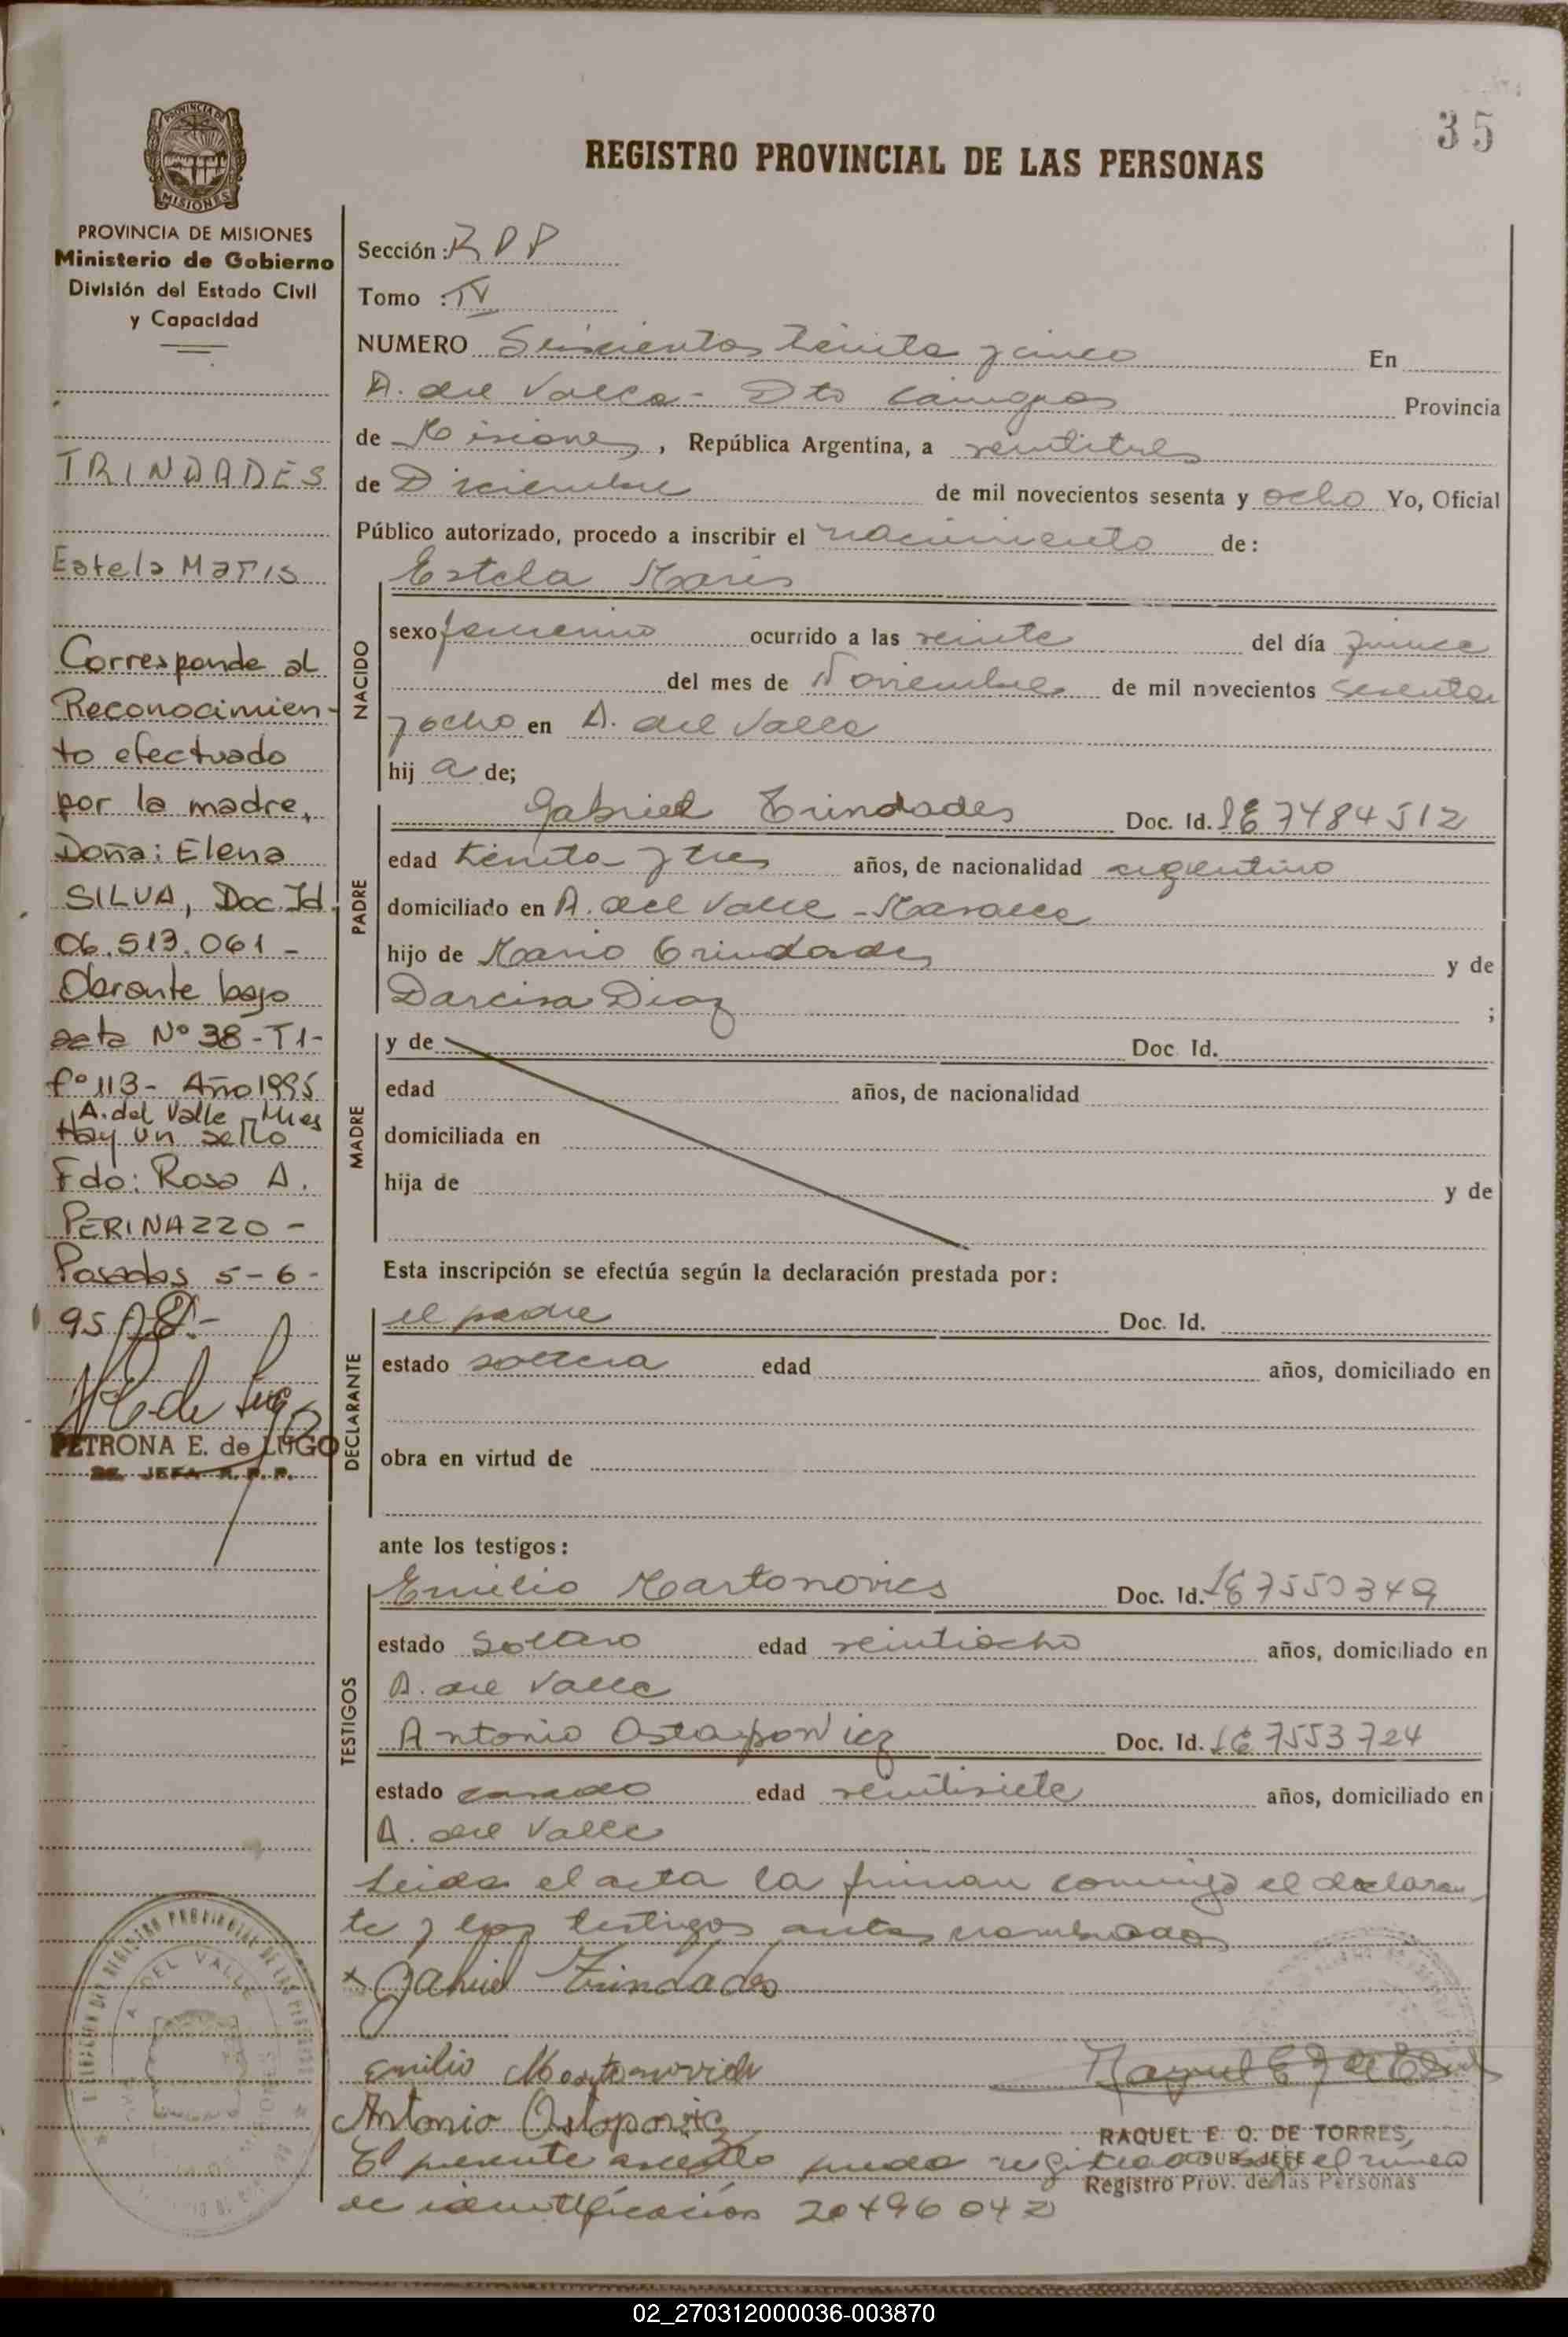 35
REGISTRO PROVINCIAL DE LAS PERSONAS
PROVINCIA DE MISIONES
Ministerio de Gobierno
División del Estado Civil
y Capacidad
TRINDADES
Estela Maris
Corresponde al
Reconocimien-
to efectuado
por la madre,
Doña: Elena
SILVA, Doc. Id.
06.513.061 -
Obrante bajo
acta Nº 38 - T1-
fº 113 - Año 1995
A. del Valle - Mnes
Hay un sello
Fdo: Rosa A.
PERINAZZO -
Posadas 5 - 6 -
95
PETRONA E. de LUGO
JEFA R.P.P.
Sección : RPP
Tomo : IV
NUMERO Seiscientos treinta y cinco En
A. del Valle - Dto Cainguas Provincia
de Misiones, República Argentina, a veintitres
de Diciembre de mil novecientos sesenta y ocho Yo, Oficial
Público autorizado, procedo a inscribir el nacimiento de:
NACIDO
Estela Maris
sexo femenino ocurrido a las veinte del día quince
del mes de Noviembre de mil novecientos sesenta
y ocho en A. del Valle
hij a de;
PADRE
Gabriel Trindades Doc. Id. LE 7484512
edad treinta y tres años, de nacionalidad argentino
domiciliado en A. del Valle -
hijo de Mario Trindades y de
Darcisa Diaz ;
MADRE
y de Doc. Id.
edad años, de nacionalidad
domiciliada en
hija de y de
Esta inscripción se efectúa según la declaración prestada por:
DECLARANTE
el padre Doc. Id.
estado edad años, domiciliado en
obra en virtud de
ante los testigos:
TESTIGOS
Emilio Martonovics Doc. Id. LE 7550349
estado soltero edad veintiocho años, domiciliado en
A. del Valle
Antonio Ostapowicz Doc. Id. LE 7553724
estado casado edad veintisiete años, domiciliado en
A. del Valle
Leida el acta la firman conmigo el declaran
te y los testigos antes nombrados
x Gabriel Trindades
Emilio
Antonio
RAQUEL E. Q. DE TORRES
SUB JEFE
Registro Prov. de las Personas
El presente asiento queda registrado el numero
de identificacion 20496042
02_270312000036-003870